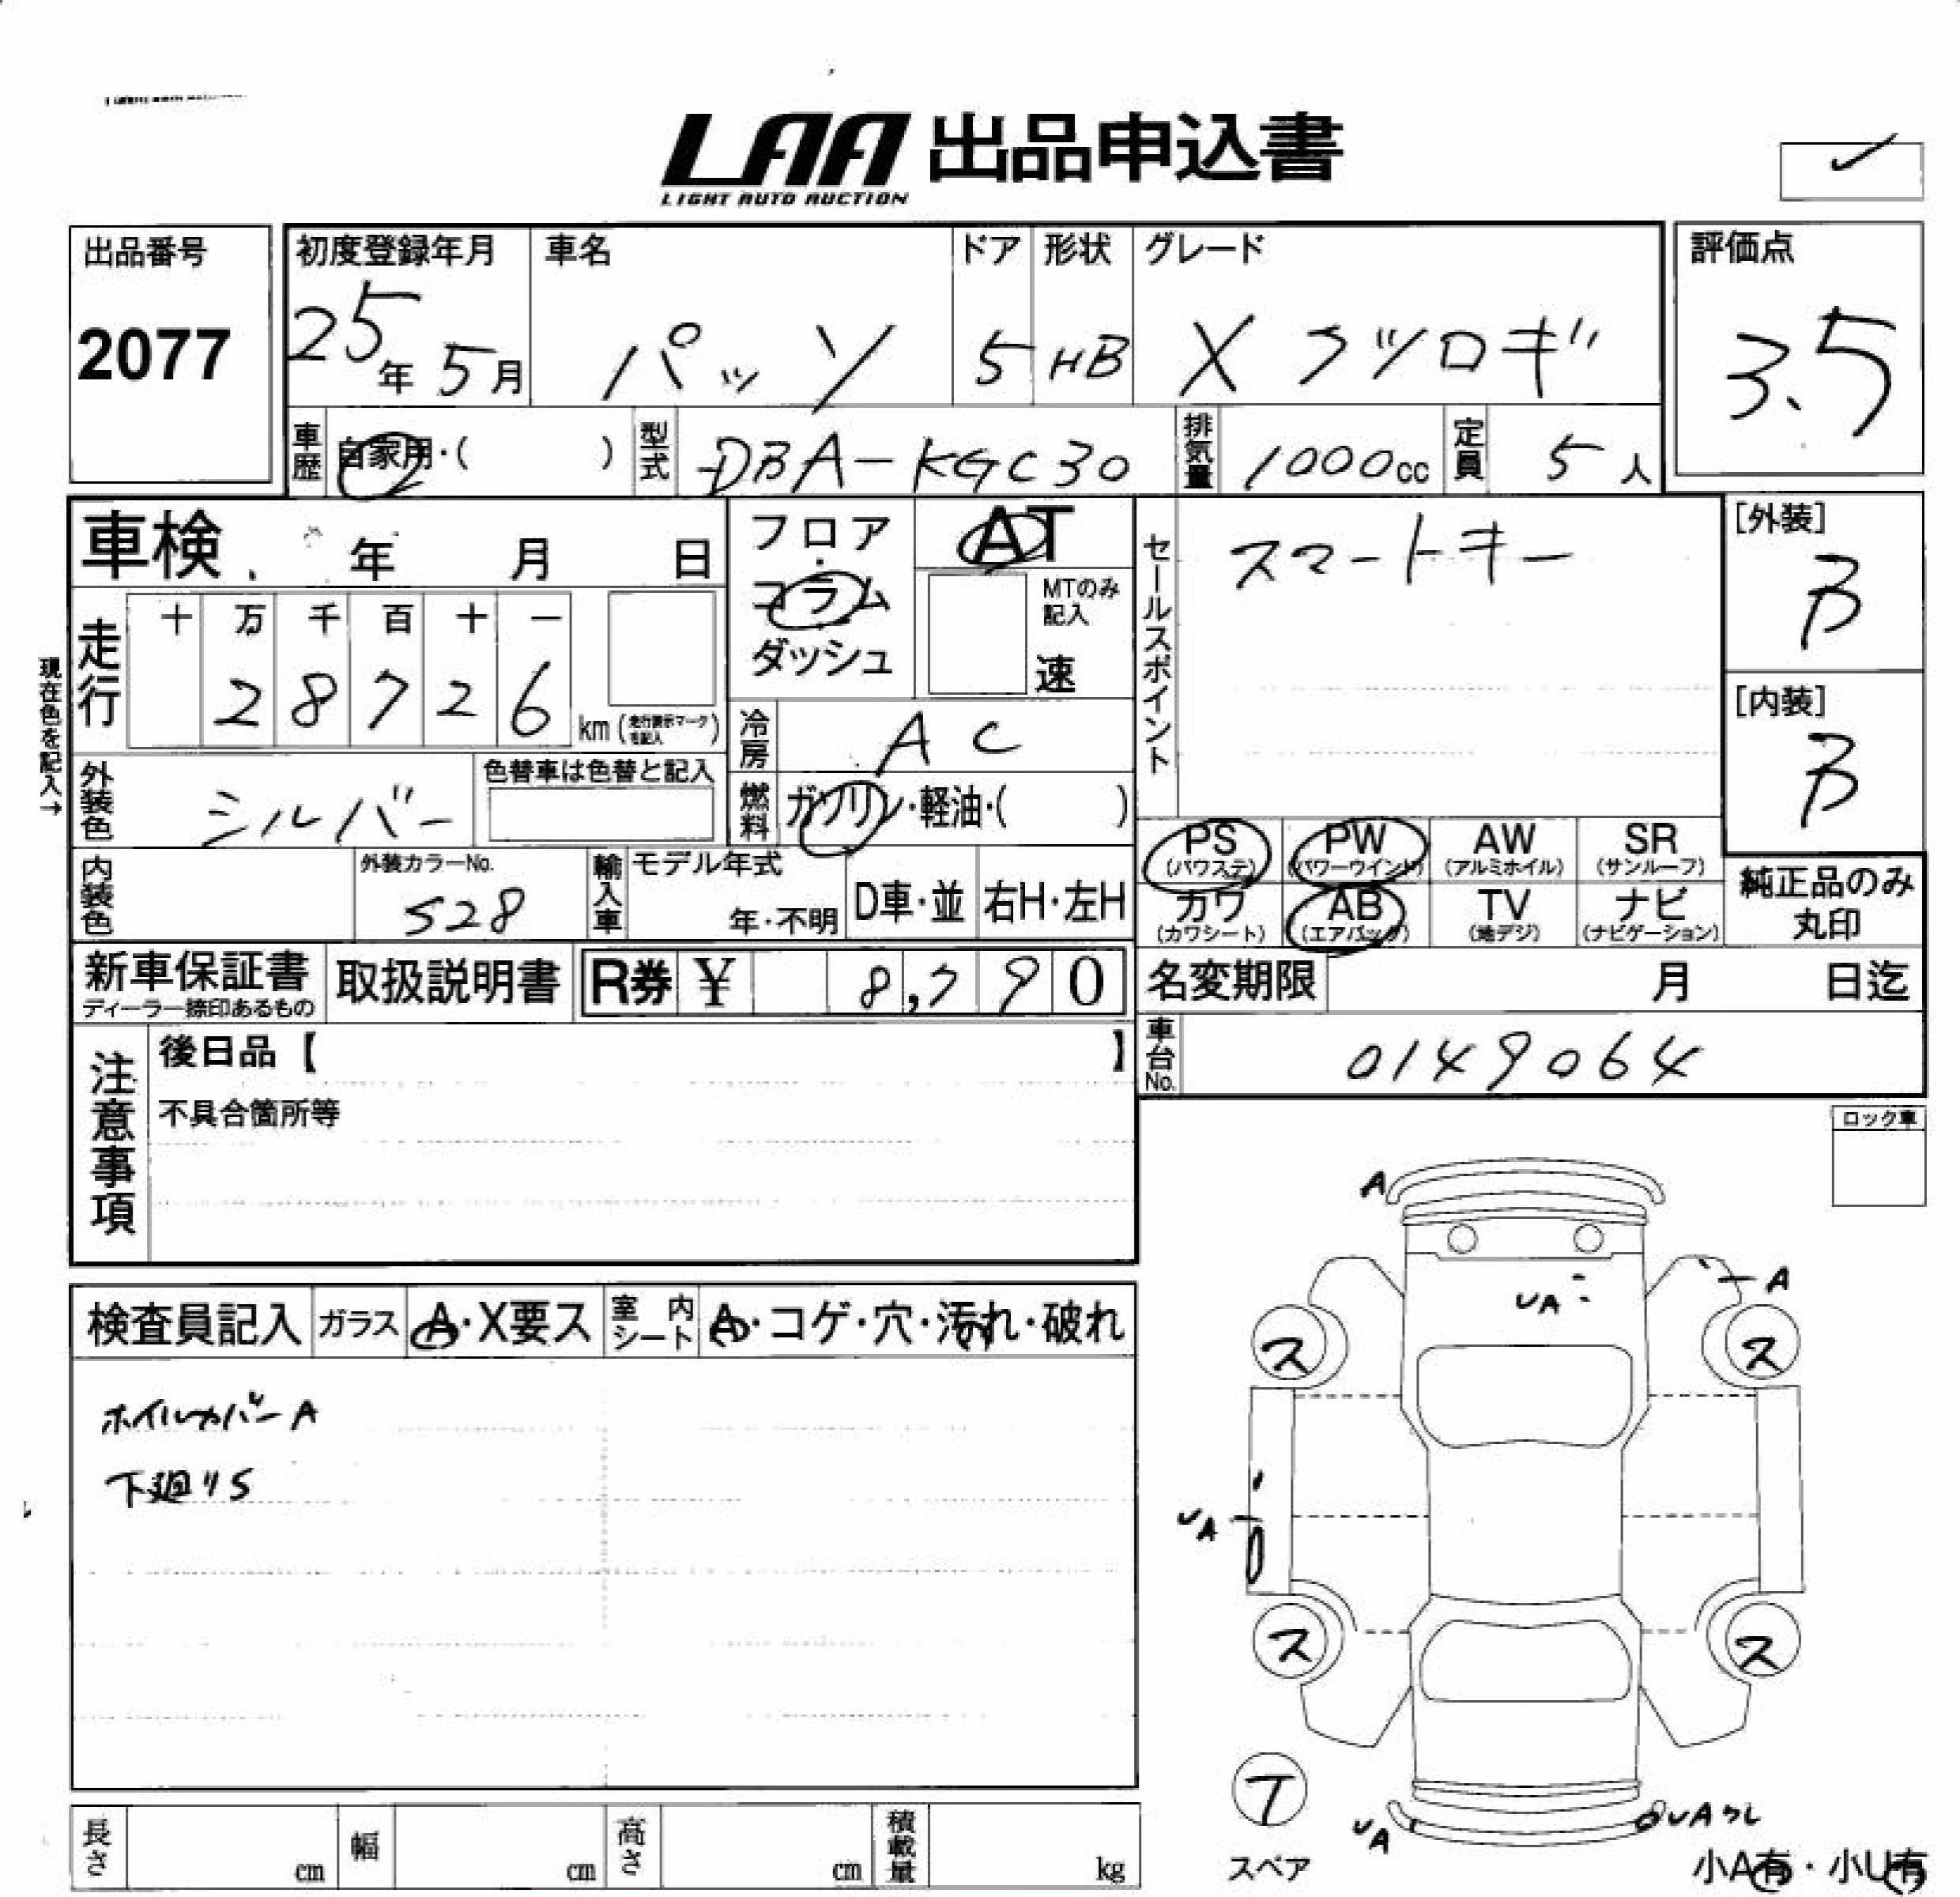 LAA 出品申込書
LIGHT AUTO AUCTION
出品番号
2077
初度登録年月
25年 5月
車名
パッソ
ドア
5
形状
HB
グレード
X クツロギ
評価点
3.5
車歴
自家用・( )
型式
DBA-KGC30
排気量
1000cc
定員
5人
車検 年 月 日
フロア・コラム・ダッシュ
AT
MTのみ記入
速
セールスポイント
スマートキー
[外装]
B
[内装]
B
現在色を記入→
走行
十 万 千 百 十 一
2 8 7 2 6 km (走行表示マークを記入)
冷房
AC
外装色
シルバー
色替車は色替と記入
燃料
ガソリン・軽油・( )
PS (パワステ)
PW (パワーウインド)
AW (アルミホイル)
SR (サンルーフ)
カワ (カワシート)
AB (エアバック)
TV (地デジ)
ナビ (ナビゲーション)
純正品のみ丸印
内装色
外装カラーNo.
528
輸入車
モデル年式
年・不明
D車・並
右H・左H
新車保証書
ディーラー捺印あるもの
取扱説明書
R券 ¥ 8,790
名変期限 月 日迄
注意事項
後日品【 】
不具合箇所等
車台No.
0149064
ロック車
検査員記入
ガラス
A・X要ス
室内シート
A・コゲ・穴・汚れ・破れ
ホイルカバーA
下廻りS
A
A
UA
ス
ス
UA
ス
ス
T
スペア
UA
UAワレ
小A有・小U有
長さ cm
幅 cm
高さ cm
積載量 kg